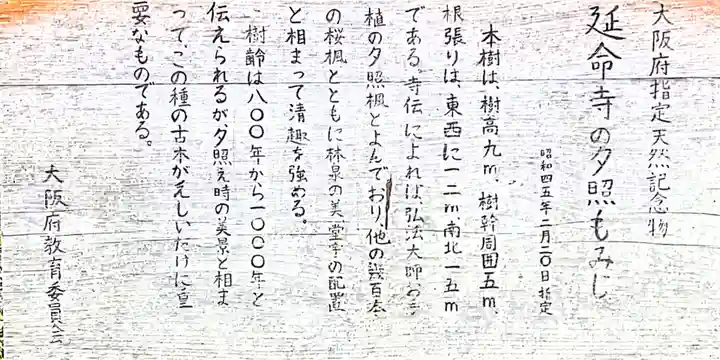 大阪府指定天然記念物
延命寺の夕照もみじ
昭和四五年二月二〇日指定
本樹は、樹高九m、樹幹周囲五m、
根張りは、東西に一二m南北一五m
である。寺伝によれば、弘法大師お手
植の夕照楓とよんでおり、他の幾百本
の桜楓とともに林泉の美、堂宇の配置
と相まって清趣を強める。
樹齢は八〇〇年から一〇〇〇年と
伝えられるが、夕照え時の美景と相ま
って、この種の古木がえしいだけに重
要なものである。
大阪府教育委員会